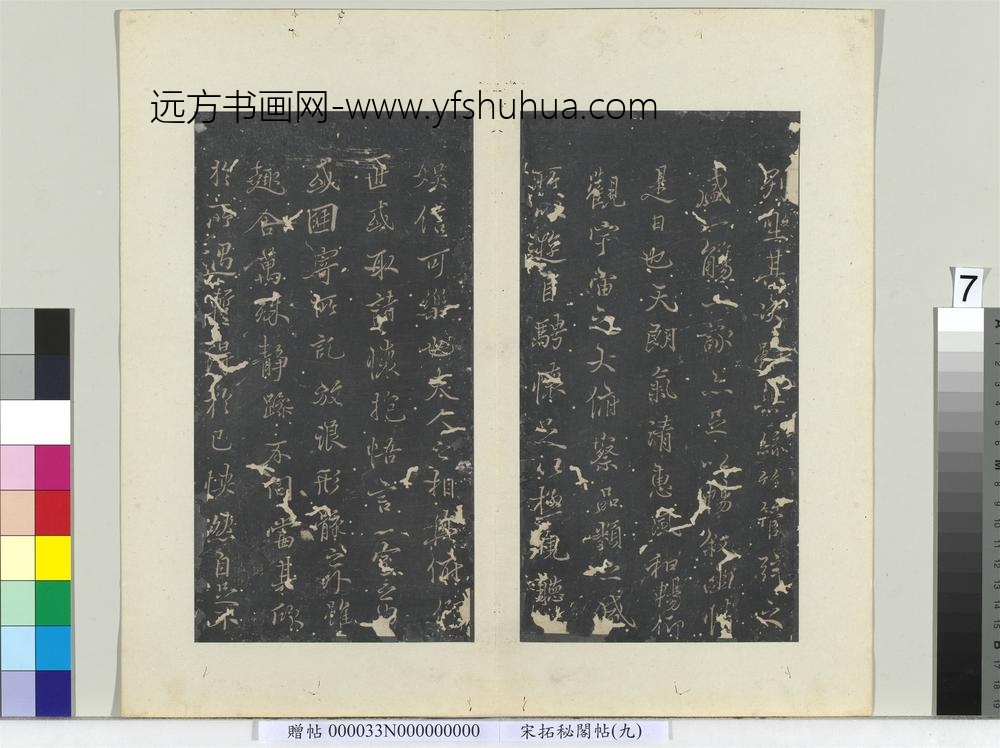 远方书画网-www.yfshuhua.com
列坐其次雖無絲竹管弦之
盛一觴一詠亦足以暢叙幽情
是日也天朗氣清惠風和暢仰
觀宇宙之大俯察品類之盛
所以遊目騁懷足以極視聽
娛信可樂也夫人之相與俯仰
一世或取諸懷抱悟言一室之內
或因寄所託放浪形骸之外雖
趣舍萬殊靜躁不同當其欣
於所遇暫得於己怏然自足不
7
贈帖 000033N000000000 宋拓秘閣帖(九)